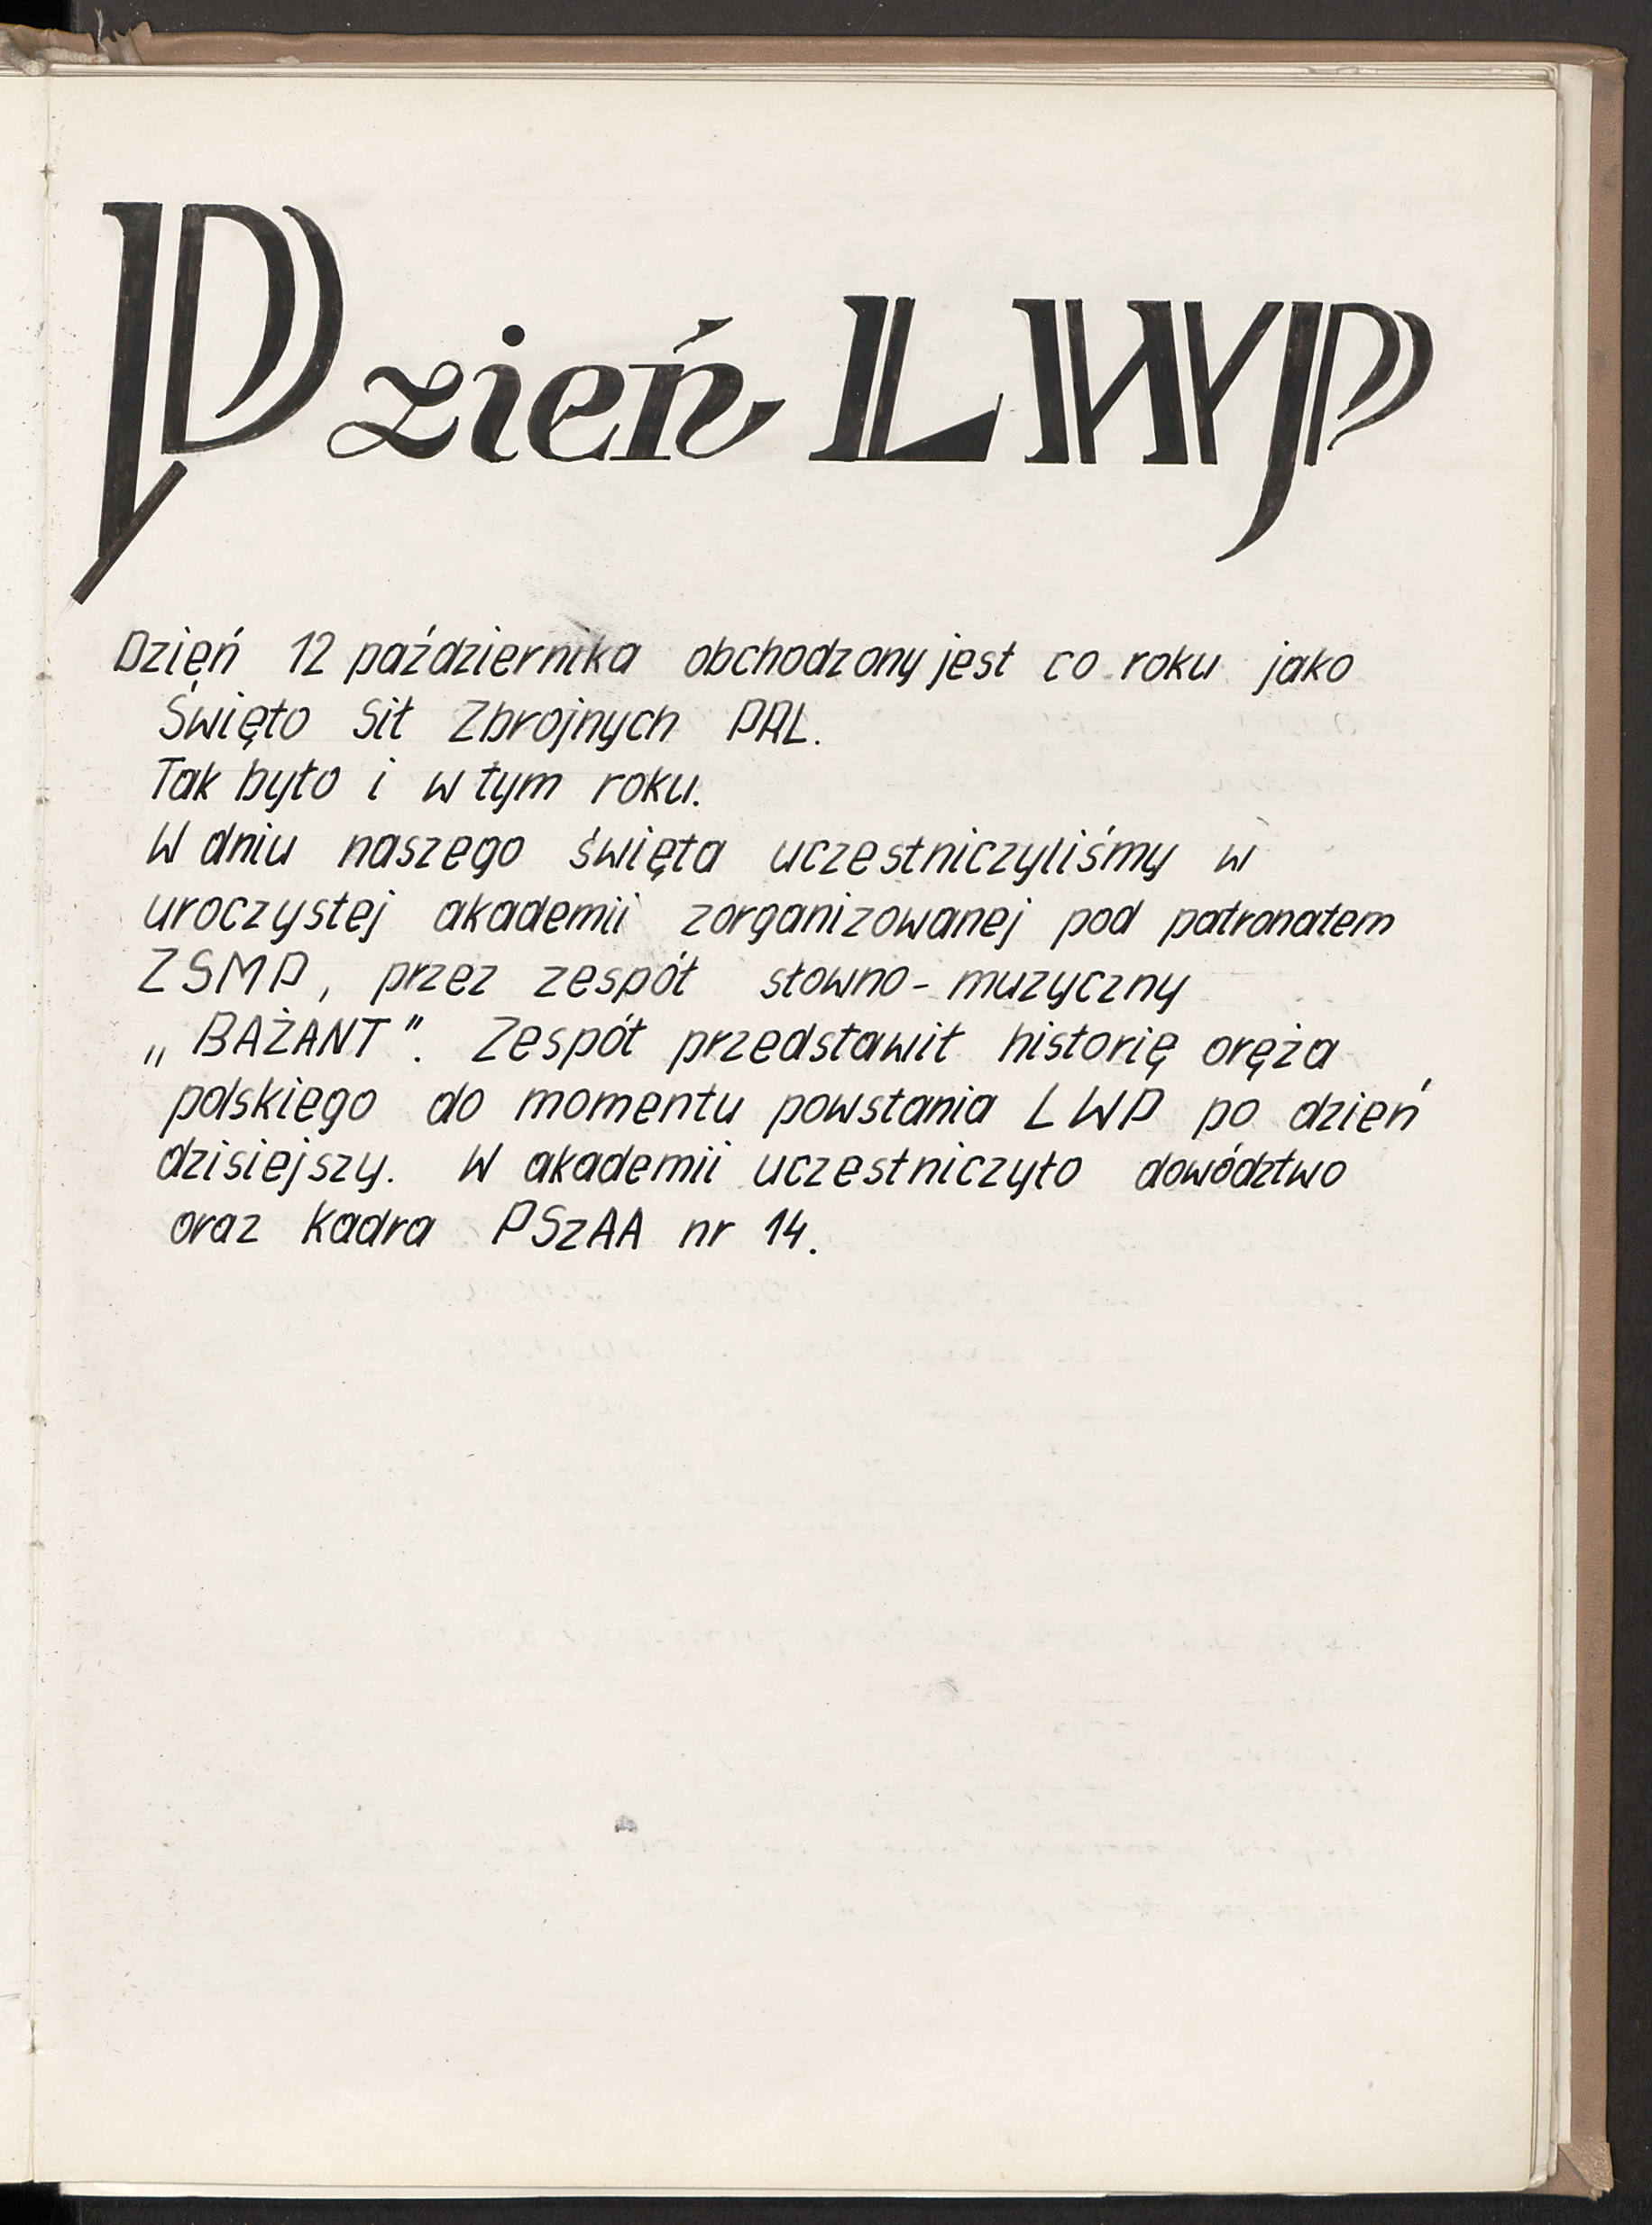 Dzień LWP
Dzień 12 października obchodzony jest co roku jako
Święto Sił Zbrojnych PRL.
Tak było i w tym roku.
W dniu naszego święta uczestniczyliśmy w
uroczystej akademii zorganizowanej pod patronatem
ZSMP, przez zespół słowno-muzyczny
„BAŻANT". Zespół przedstawił historię oręża
polskiego do momentu powstania LWP po dzień
dzisiejszy. W akademii uczestniczyło dowództwo
oraz kadra PSzAA nr 14.